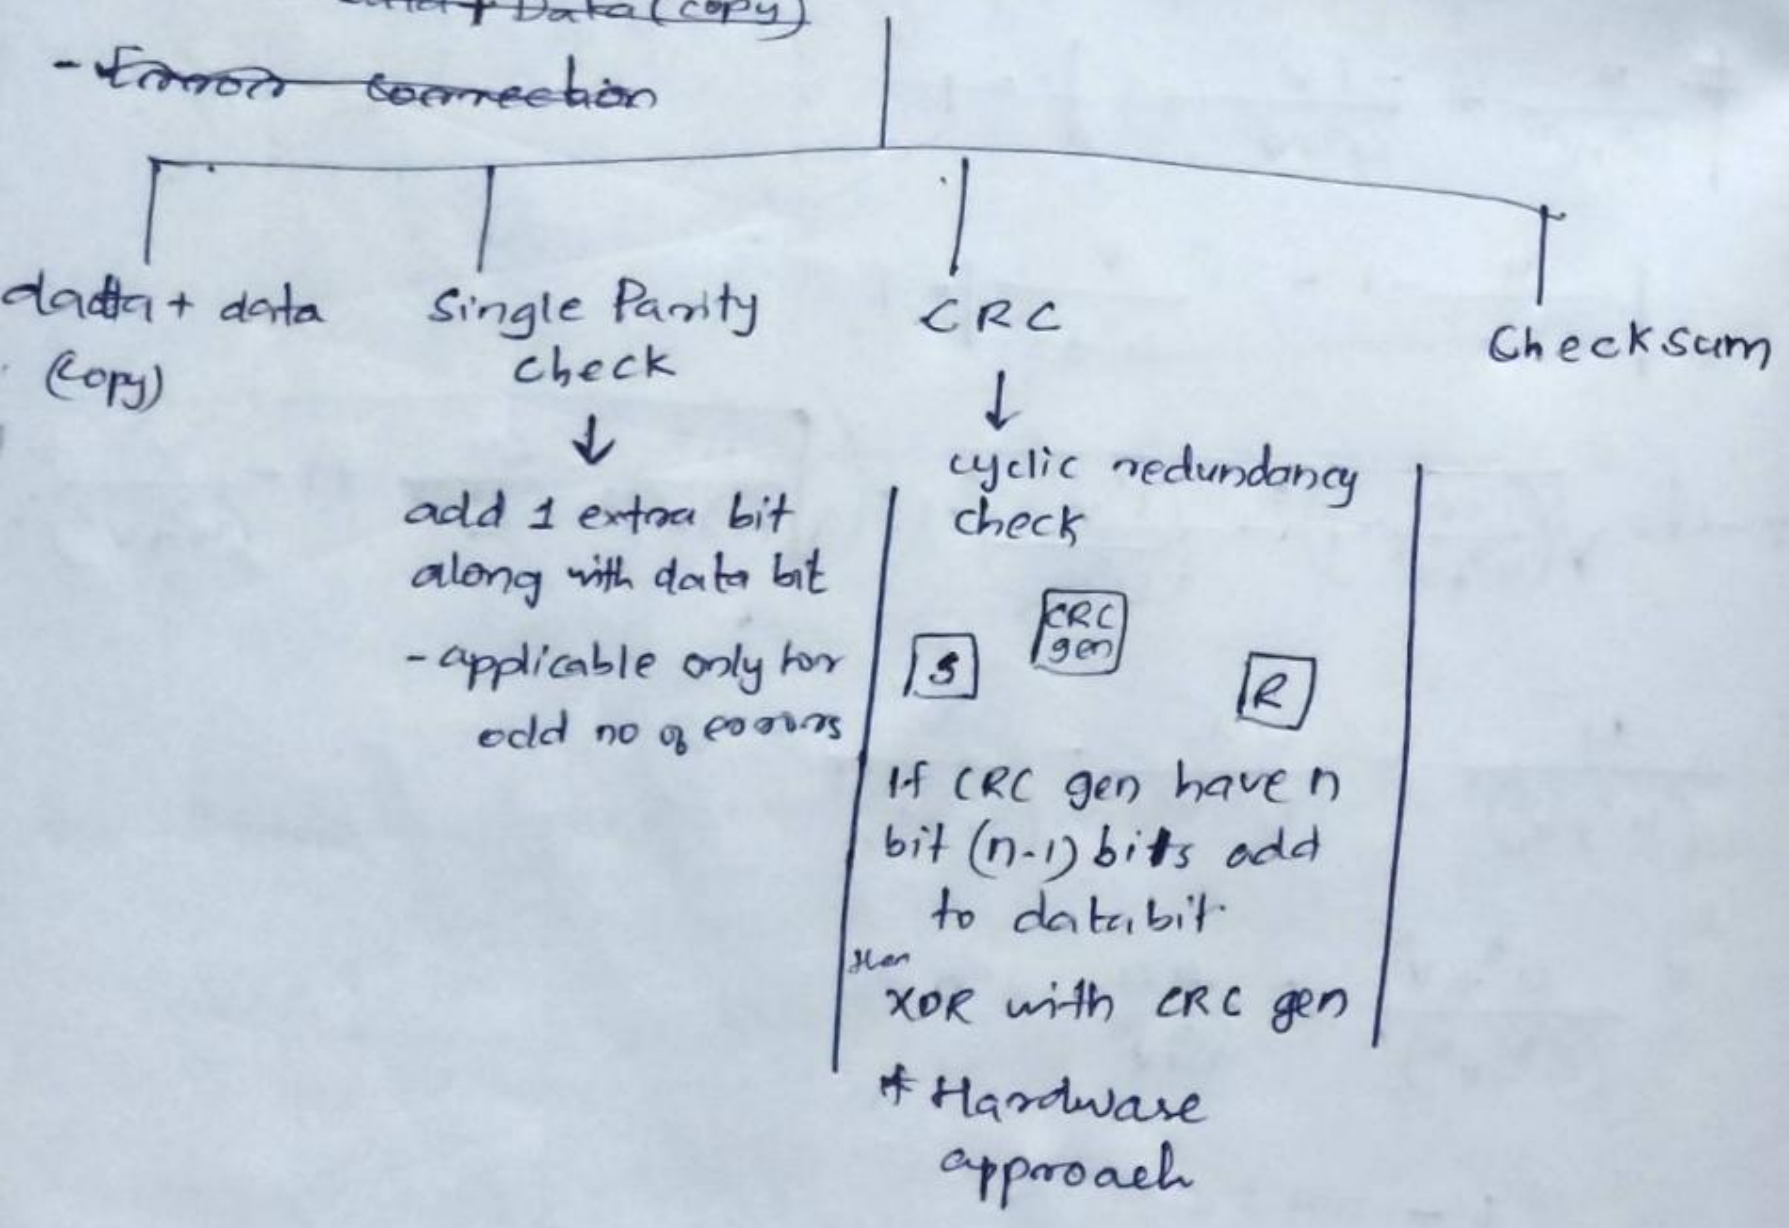 Data + Data (copy)
- Error correction
data + data
(copy)
Single Parity
check
add 1 extra bit
along with data bit
- applicable only for
odd no of errors
CRC
cyclic redundancy
check
S
CRC
gen
R
If CRC gen have n
bit (n-1) bits add
to data bit.
then
XOR with CRC gen
* Hardware
approach
Checksum